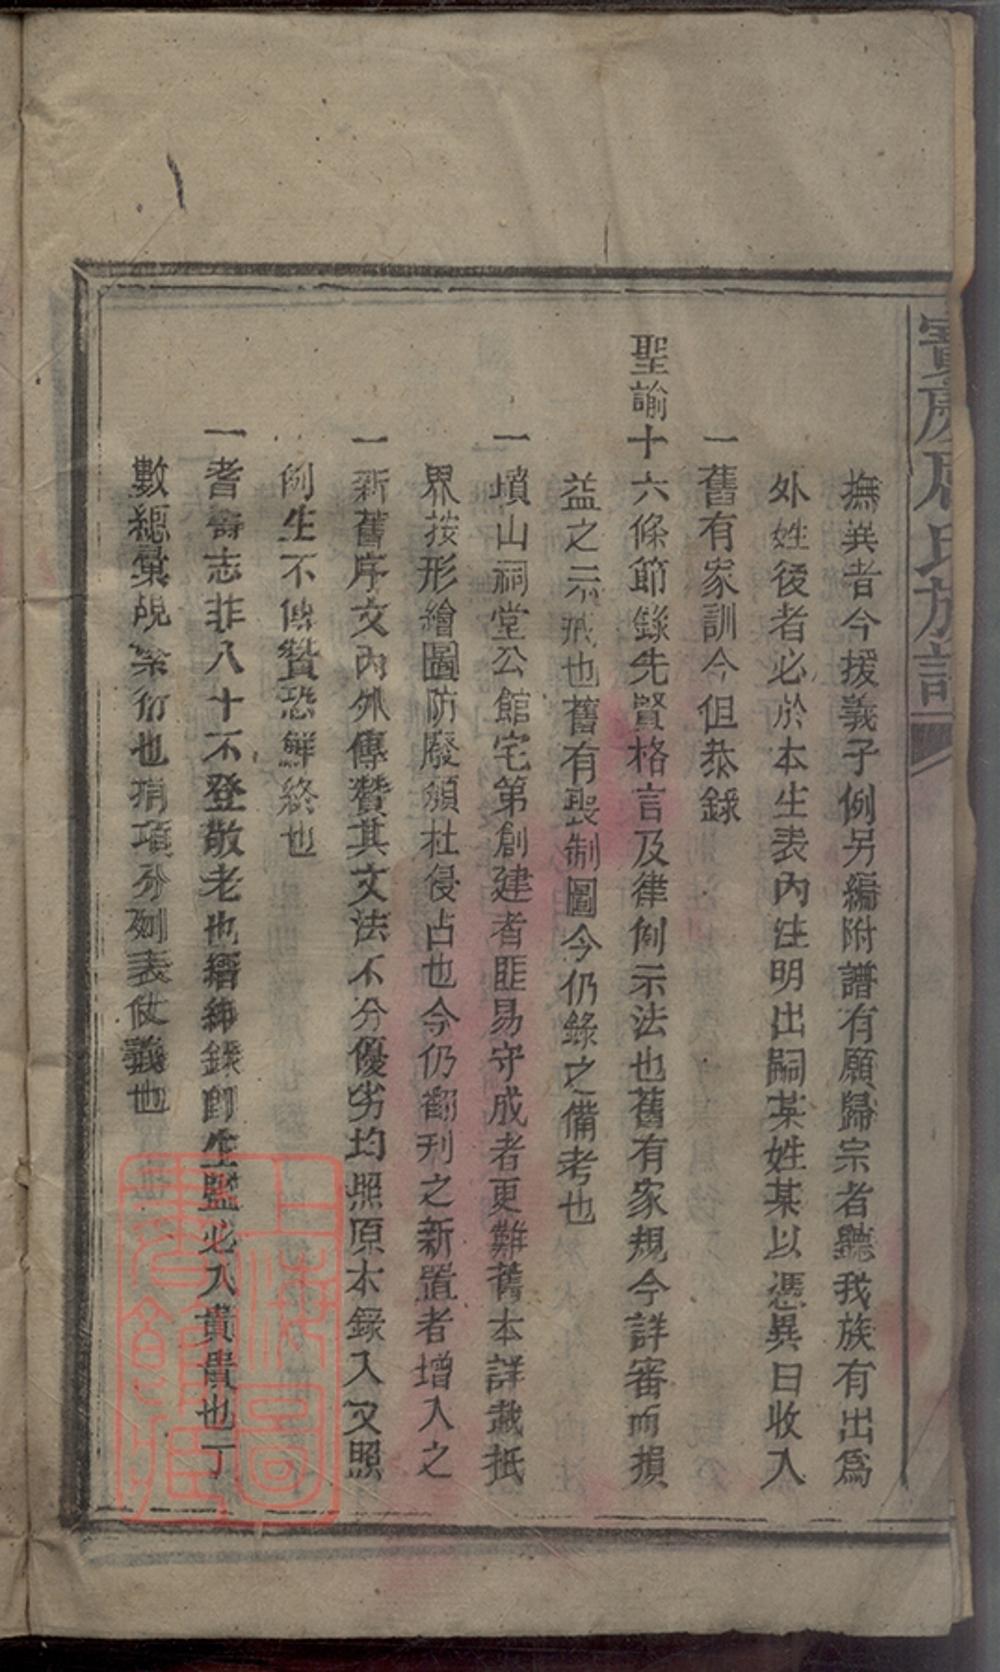 撫異者今援義子例另編附譜有願歸宗者聽我族有出爲
外姓後者必於本生表內注明出嗣某姓某以憑異日收入
一舊有家訓今但恭錄
聖諭十六條節錄先賢格言及律例示法也舊有家規今詳審而損
益之示戒也舊有喪制圖今仍錄之備考也
一墳山祠堂公館宅第創建者匪易守成者更難舊本詳載抵
界按形繪圖防廢頹杜侵占也今仍翻刊之新置者增入之
一新舊序文內外傳贊其文法不分優劣均照原本錄入又照
例生不傳贊恐鮮終也
一耆壽志非八十不登敬老也縉紳錄即生監必入貴貴也丁
數總彙覘繁衍也捐項分列表仗義也
氏族
上海圖書館藏